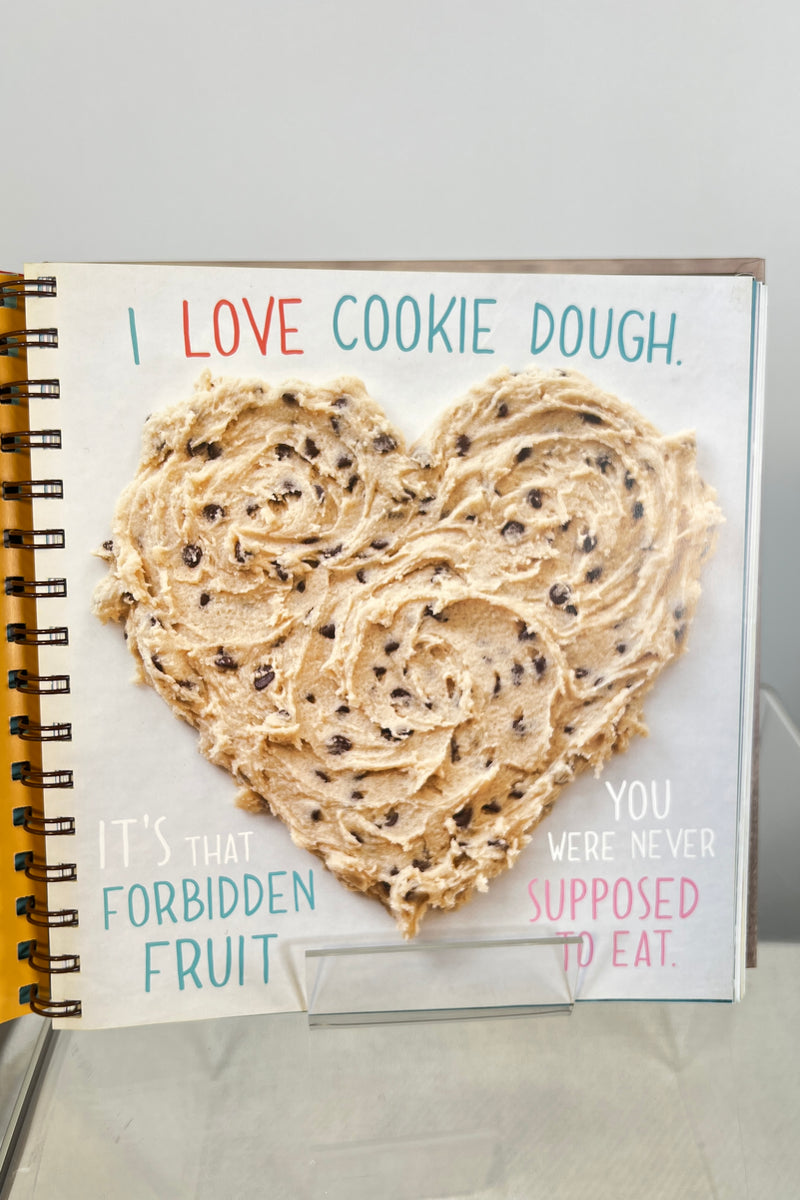 I LOVE COOKIE DOUGH.
IT'S THAT
FORBIDDEN
FRUIT
YOU
WERE NEVER
SUPPOSED
TO EAT.